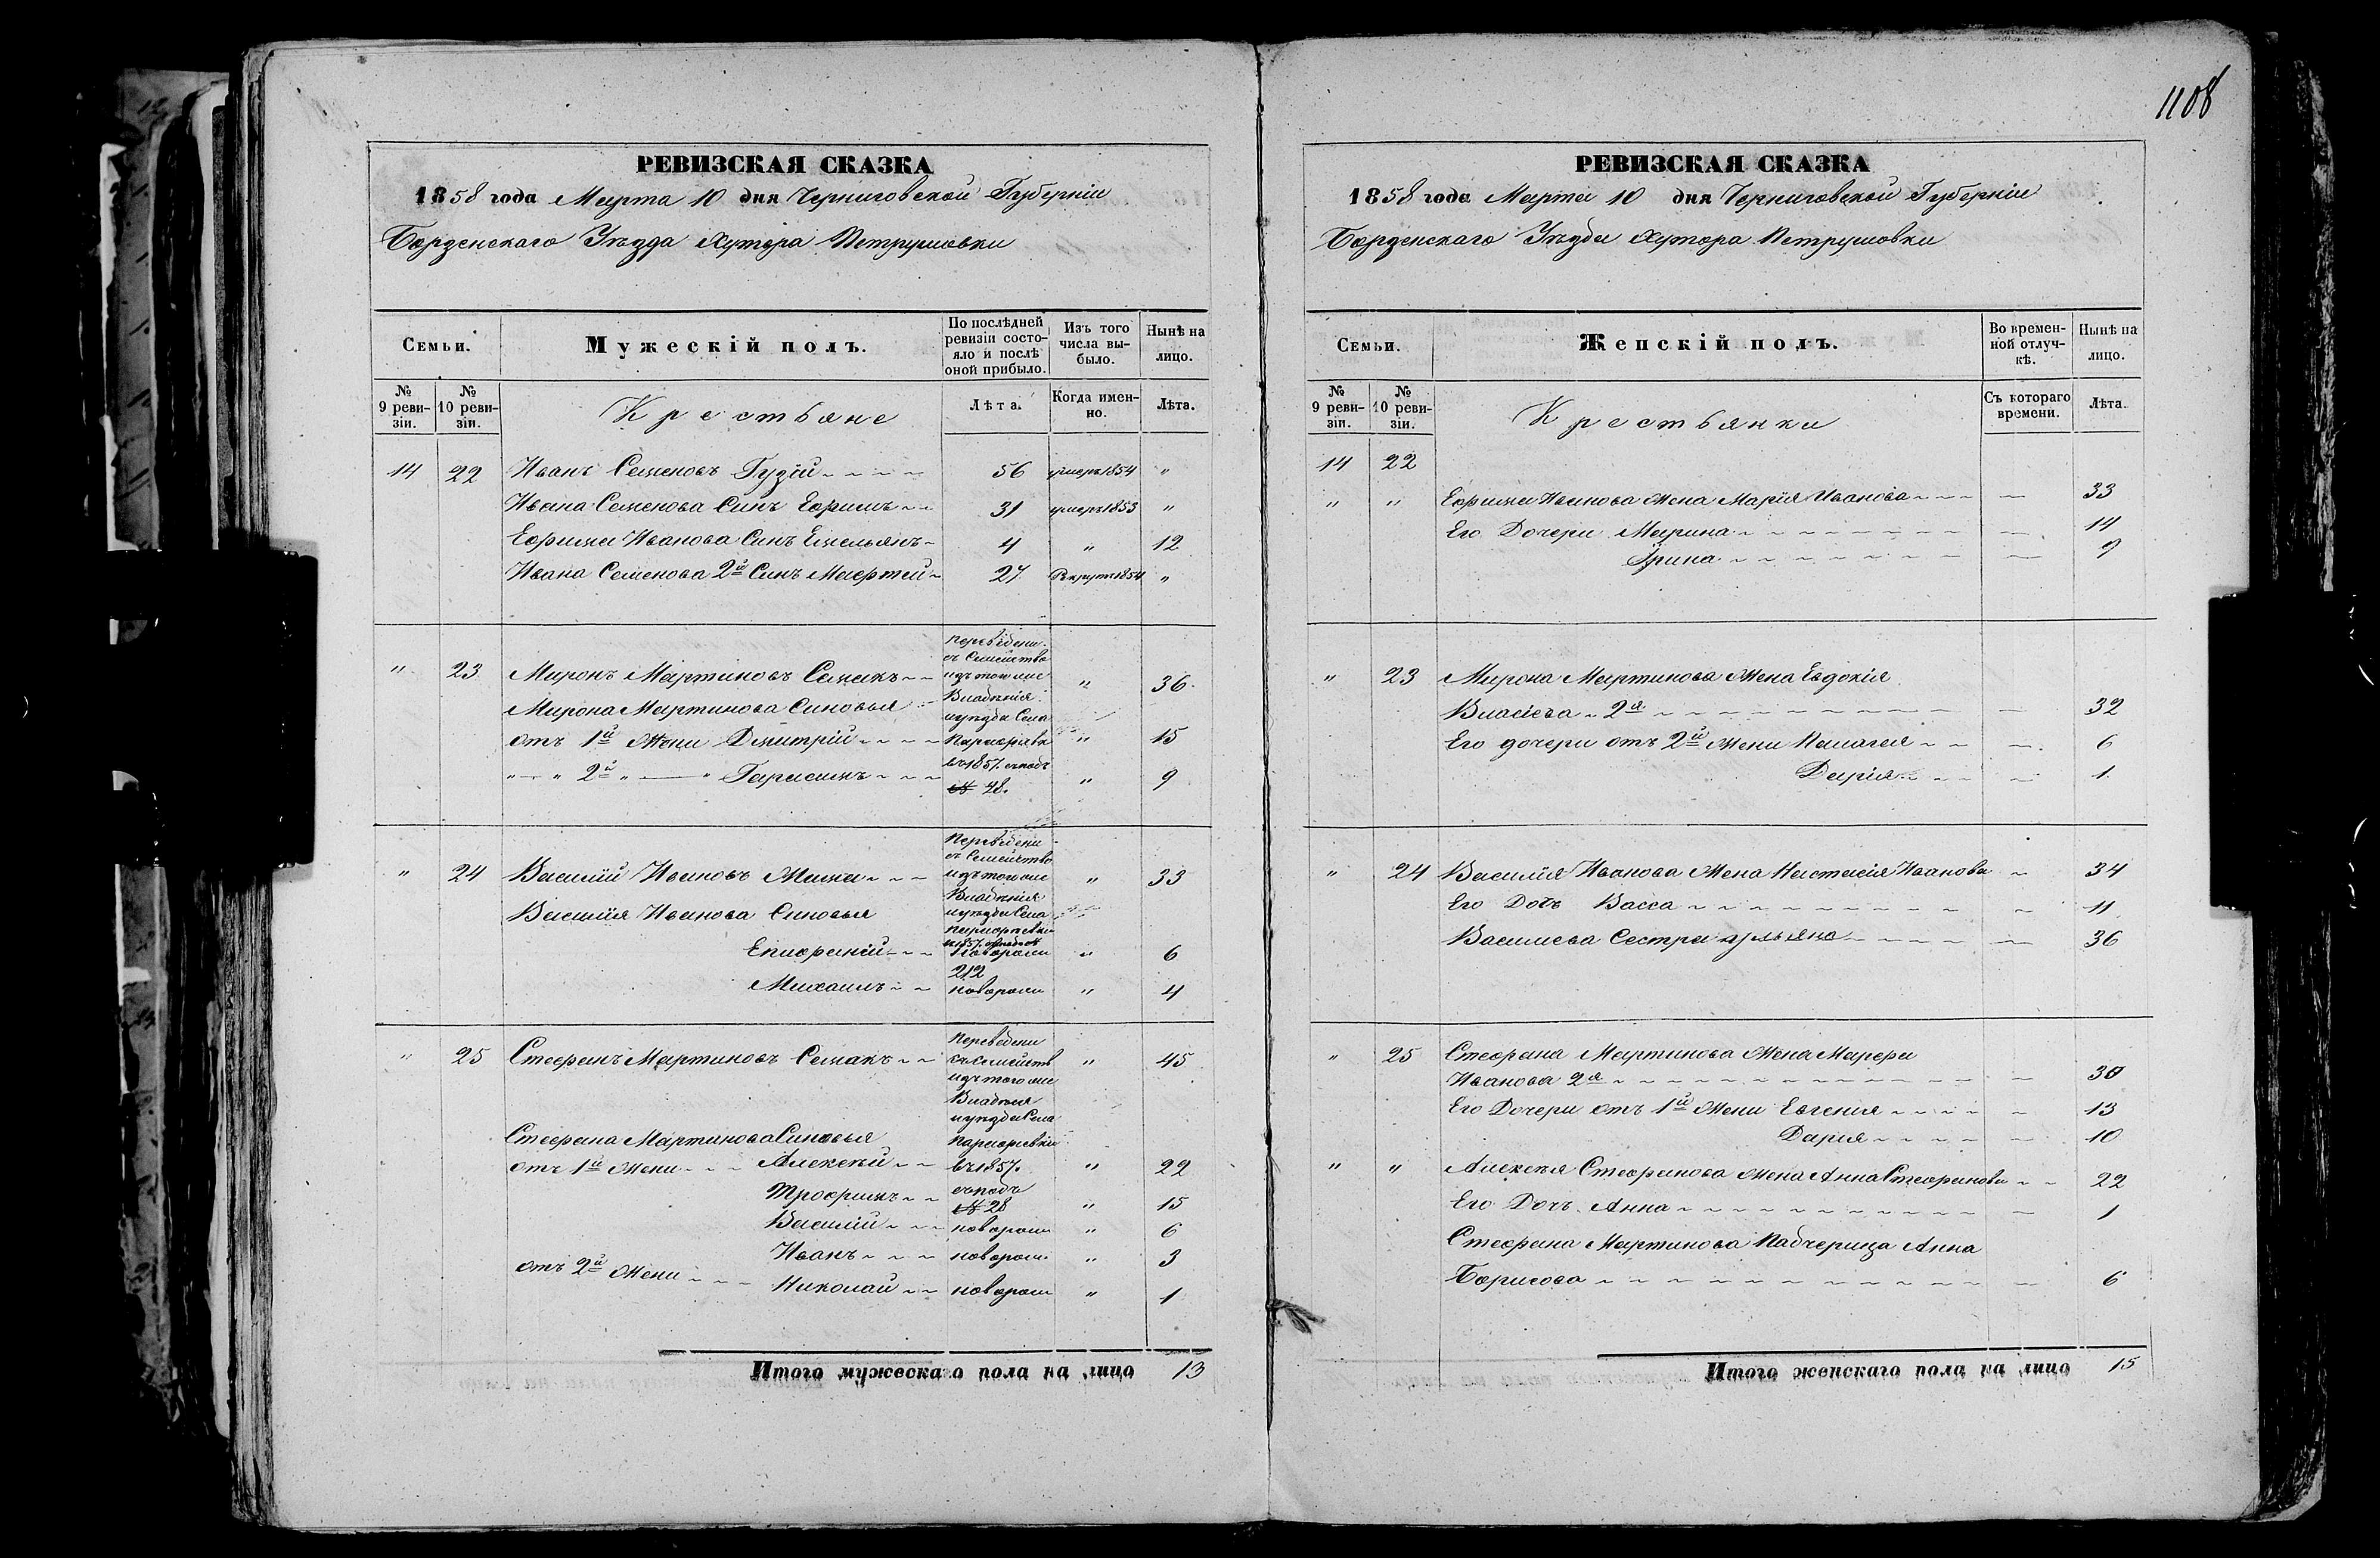 1108
РЕВИЗСКАЯ СКАЗКА
1858 года Марта 10 дня Черниговской Губерніи
Борзенскаго Уѣзда Хутора Петрушовки
Семьи.
Мужескій полъ.
По послѣдней ревизіи состояло и послѣ оной прибыло.
Изъ того числа выбыло.
Нынѣ на лицо.
№ 9 ревизіи.
№ 10 ревизіи.
Крестьяне
Лѣта.
Когда именно.
Лѣта.
14 22 Иванъ Семеновъ Гузій 56 умеръ 1854 "
Ивана Семенова Синъ Ефимъ 31 умеръ 1853 "
Ефима Иванова Синъ Емельянъ 4 " 12
Ивана Семенова 2й Синъ 27 1854 "
" 23 Миронъ Мартиновъ Семакъ " 36
Переведени
съ Семейства
изъ того же
Владѣнія
иуезда Села
въ 1857. съ подъ
№ 28.
Мирона Мартинова Синовья
отъ 1й Жени Димитрій " 15
" — " 2й " — " Гарасимъ " 9
" 24 Василій Ивановъ " 33
Переведени
съ Семейство
изъ того же
Владѣнія
иуезда Села
212
Василія Иванова Синовья
Епифаній новорож " 6
Михаилъ новорож " 4
" 25 Стефанъ Мартиновъ Семакъ " 45
Переведени
съ Семейств
изъ того же
Владѣнія
иуезда Села
въ 1857.
съ подъ
№ 28
Стефана Мартинова Синовья
отъ 1й Жени Алексѣй " 22
Трофимъ " 15
Василій новорож " 6
Иванъ новорож " 3
отъ 2й Жени Николай новорож " 1
Итого мужескаго пола на лицо 13
РЕВИЗСКАЯ СКАЗКА
1858 года Марта 10 дня Черниговской Губерніи
Борзенскаго Уѣзда Хутора Петрушовки
Семьи.
Женскій полъ.
Во временной отлучкѣ.
Нынѣ на лицо.
№ 9 ревизіи.
№ 10 ревизіи.
Крестьянки
Съ котораго времени.
Лѣта.
14 22
" " Ефима Иванова Жена Марія Иванова — 33
Его Дочери Марина — 14
Ирина — 9
" 23 Мирона Мартинова Жена Евдокія
Власіева 2я — 32
Его дочери отъ 2й Жени Палагея — 6
Дарія — 1
" 24 Василія Иванова Жена Настасія Иванова — 34
Его Дочь Васса — 11
Василиева Сестра Ульяна — 36
" 25 Стефана Мартинова Жена Марфа
Иванова 2я — 30
Его Дочери отъ 1й Жени Евгения — 13
Дария — 10
" " Алексѣя Стефанова Жена Анна Стефанова 22
Его Дочъ Анна — 1
Стефана Мартинова Падчерица Анна
Борисова — 6
Итого женскаго пола на лицо 15